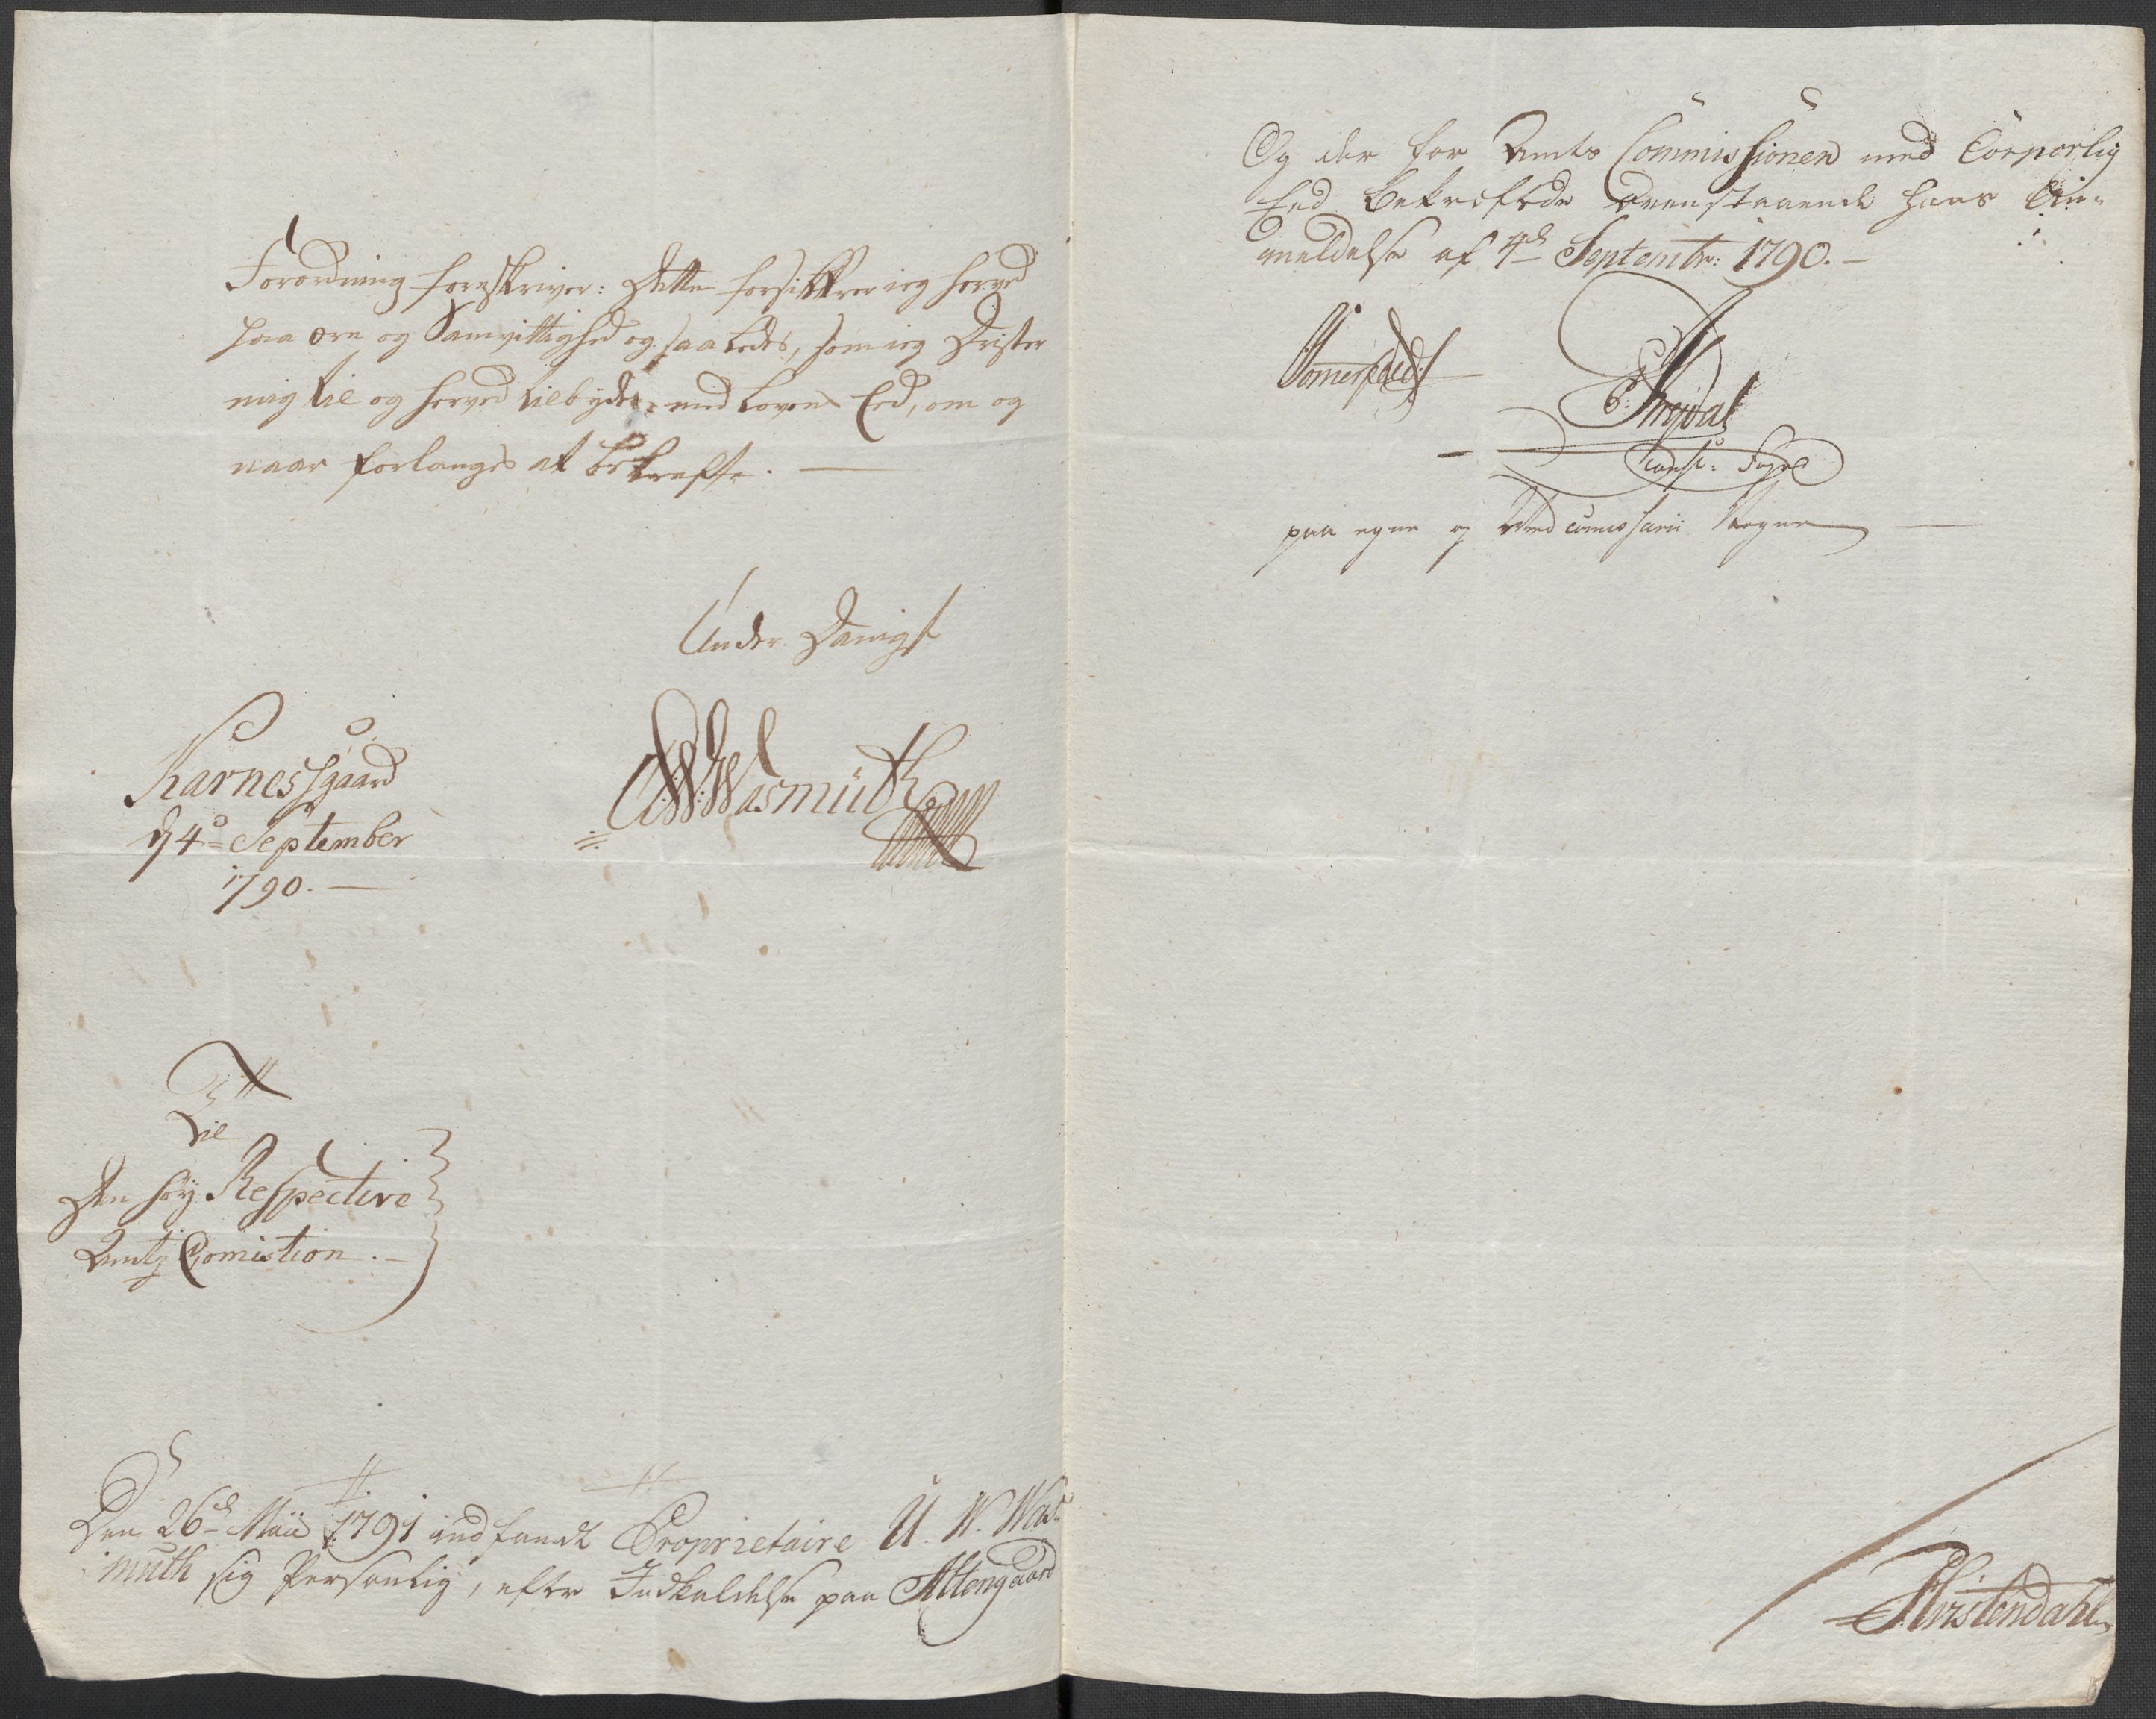 Forordning foreskriver: Dette forsikkrer ieg herved
paa ære og Samvittighed og saaledes, som ieg Drister
mig til og herved tilbyder, med Lovens Eed, om og
naar forlanges at bekræfte. —
Under Danigst
Karnes Sgaard
d 4de September
1790. —
U. W. Wasmuth
Til
Den høy Respective
Amts Comistion. —
Den 26de Maii 1791 indfandt Proprietaire U. W. Was-
muth sig Personlig, efter Indkaldelse paa Altengaard
Og der for Amts Commissionen med Corporlig
Eed bekræftede ovenstaaende hans An-
meldelse af 4de Septembr: 1790. —
Sommerfeldt
const: Foged
paa egne og Med Comissarii Vegne —